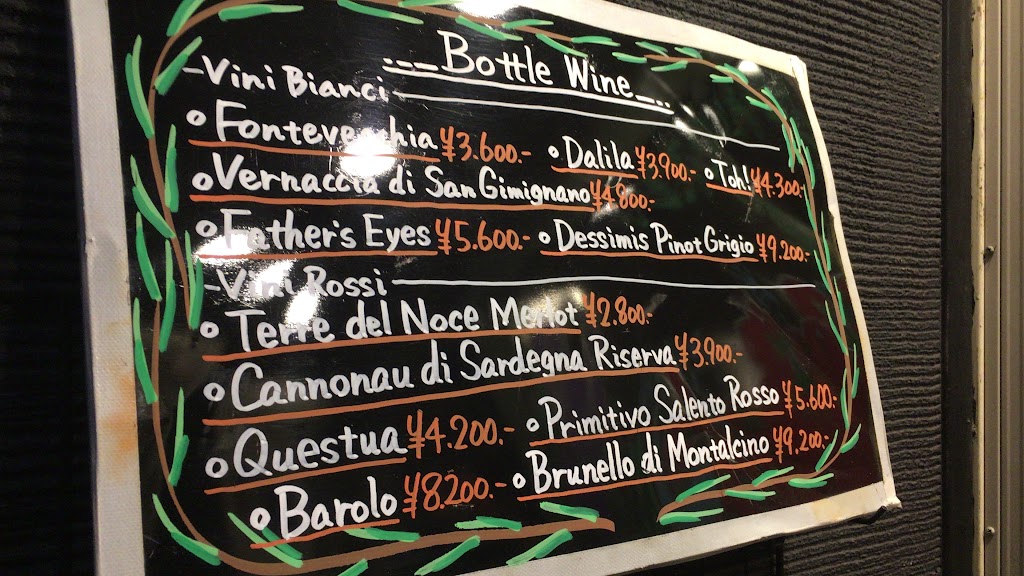 Bottle Wine
-Vini Bianci
Fontevecchia ¥3.600.- Dalila ¥3900.- Toh! ¥4.300-
Vernaccia di San Gimignano ¥4800.-
Father's Eyes ¥5.600.- Dessimis Pinot Grigio ¥9.200.-
-Vini Rossi
Terre del Noce Merlot ¥2.800.-
Cannonau di Sardegna Riserva ¥3.900.-
Questua ¥4.200.- Primitivo Salento Rosso ¥5.600.-
Barolo ¥8.200.- Brunello di Montalcino ¥9.200.-